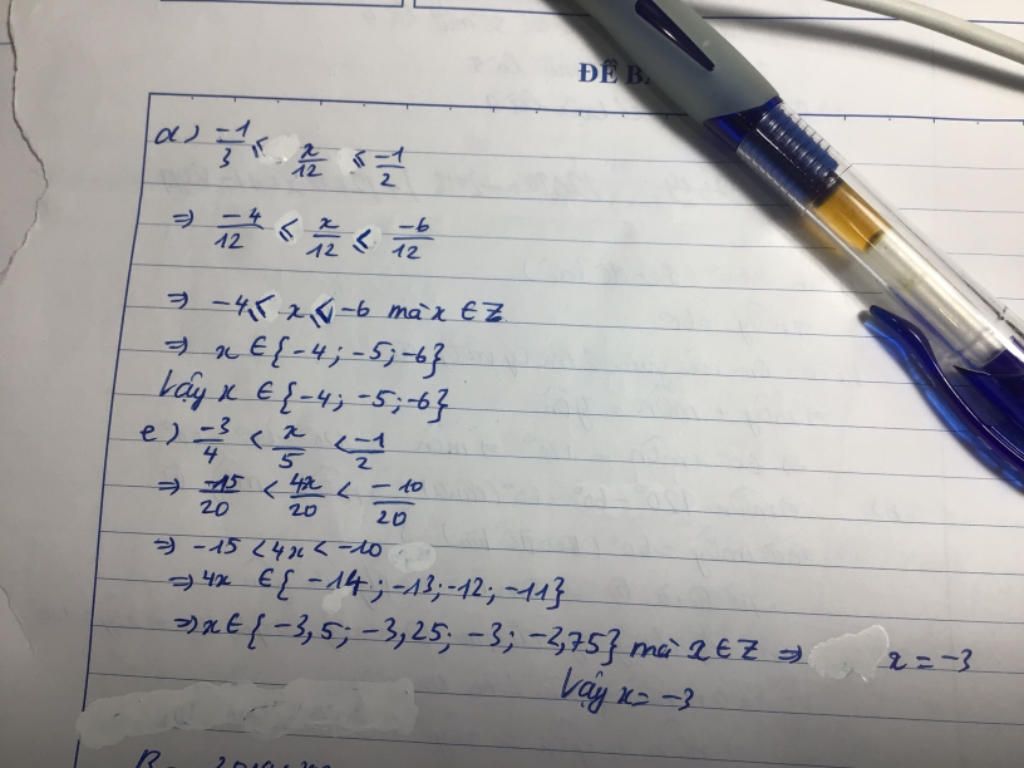 ĐỀ B
a) -1/3 ≤ x/12 ≤ -1/2
⇒ -4/12 ≤ x/12 ≤ -6/12
⇒ -4 ≤ x ≤ -6 mà x ∈ Z
⇒ x ∈ {-4; -5; -6}
Vậy x ∈ {-4; -5; -6}
e) -3/4 < x/5 < -1/2
⇒ -15/20 < 4x/20 < -10/20
⇒ -15 < 4x < -10
⇒ 4x ∈ {-14; -13; -12; -11}
⇒ x ∈ {-3,5; -3,25; -3; -2,75} mà x ∈ Z ⇒ x = -3
Vậy x = -3